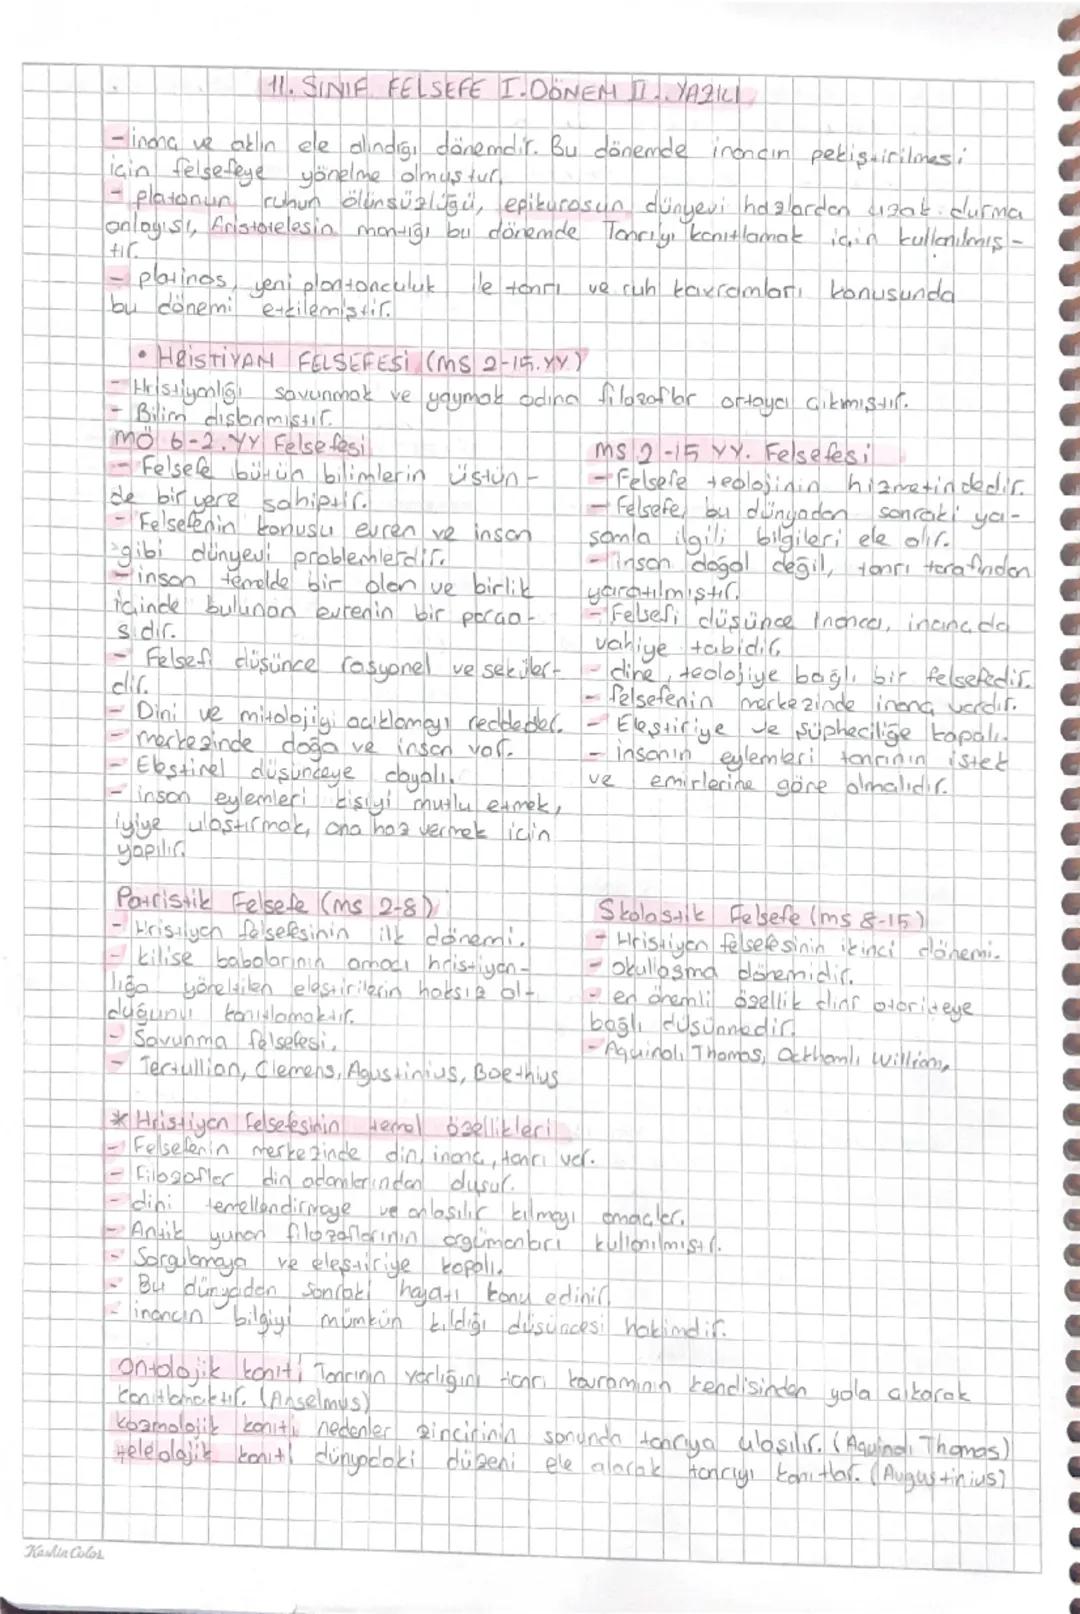 11. SINIF FELSEFE I. DÖNEM II. YAZILI
- inanç ve aklın ele alındığı dönemdir. Bu dönemde inancın pekiştirilmesi
için felsefeye yönelme olmuştur.
- platonun ruhun ölünsüzlüğü, epikurosun dünyevi hazlardan uzak durma
anlayışı, Aristotelesin mantığı bu dönemde Tanrıyı kanıtlamak için kullanılmış-
tır.
- platinos, yeni plantonculuk ile tanrı ve ruh kavramları konusunda
bu dönemi etkilemiştir.
• HRİSTİYAN FELSEFESİ (MS 2-15.YY)
- Hristiyanlığı savunmak ve yaymak adına filozoflar ortaya çıkmıştır.
- Bilim dışlanmıştır.
MÖ 6-2.YY Felsefesi
- Felsefe bütün bilimlerin üstün-
de bir yere sahiptir.
- Felsefenin konusu evren ve insan
gibi dünyevi problemlerdir.
- insan temelde bir olan ve birlik
içinde bulunan evrenin bir parça-
sıdır.
- Felsefi düşünce rasyonel ve seküler-
dir.
- Dini ve mitolojiyi açıklamayı reddeder.
- merkezinde doğa ve insan var.
- Eleştirel düşünceye dayalı.
- insan eylemleri kişiyi mutlu etmek,
iyiye ulaştırmak, ona haz vermek için
yapılır.
MS 2-15 YY. Felsefesi
- Felsefe teolojinin hizmetindedir.
- Felsefe, bu dünyadan sonraki ya-
şamla ilgili bilgileri ele alır.
- insan doğal değil, tanrı tarafından
yaratılmıştır.
- Felsefi düşünce inanca, inançda
vahiye tabidir.
- dine, teolojiye bağlı bir felsefedir.
- felsefenin merkezinde inanç vardır.
- Eleştiriye ve şüpheciliğe kapalı.
- insanın eylemleri tanrının istek
ve emirlerine göre olmalıdır.
Patristik Felsefe (MS 2-8)
- Hristiyan felsefesinin ilk dönemi.
- kilise babalarının amacı hristiyan-
lığa yöneltilen eleştirilerin haksız ol-
duğunu kanıtlamaktır.
- Savunma felsefesi.
- Tertullian, Clemens, Agustinius, Boethius
Skolastik Felsefe (ms 8-15)
- Hristiyan felsefesinin ikinci dönemi.
- Okullaşma dönemidir.
- en önemli özellik dini otoriteye
bağlı düşünmedir.
- Aquinolı Thomas, Ockhamlı William,
* Hristiyan felsefesinin temel özellikleri
- Felsefenin merkezinde din, inanç, tanrı var.
- Filozoflar din adamlarından oluşur.
- dini temellendirmeye ve anlaşılır kılmayı amaçlar.
- Antik yunan filozaflarının argümanları kullanılmıştır.
- Sorgulamaya ve eleştiriye kapalı.
- Bu dünyadan sonraki hayatı konu edinir.
- inancın bilgiyi mümkün kıldığı düşüncesi hakimdir.
Ontolojik kanıtı Tanrının varlığını tanrı kavramının kendisinden yola çıkarak
kanıtlamaktır. (Anselmus)
kozmolojik kanıtı nedenler zincirinin sonunda tanrıya ulaşılır. (Aquinolı Thomas)
teleolojik kanıtı dünyadaki düzeni ele alarak tanrıyı kanıtlar. (Augustinius)
Kashin Color